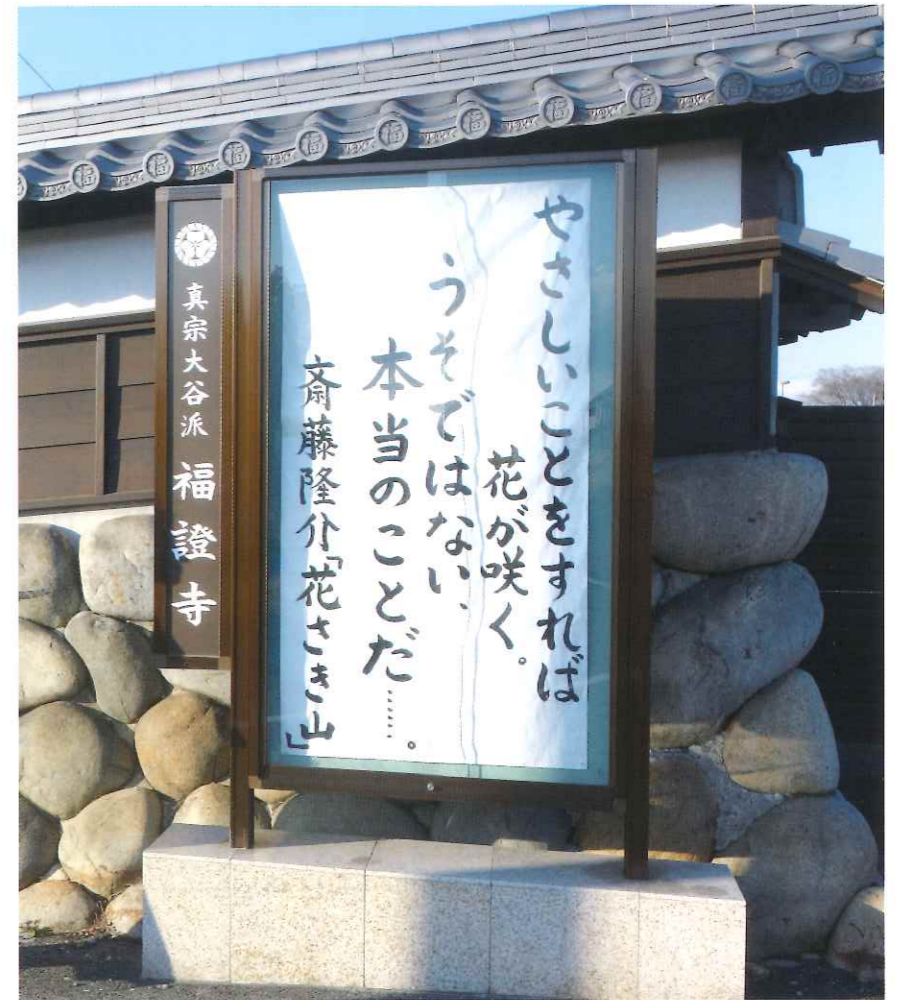 やさしいことをすれば
花が咲く。
うそではない、
本当のことだ……。
斎藤隆介「花さき山」
真宗大谷派 福證寺